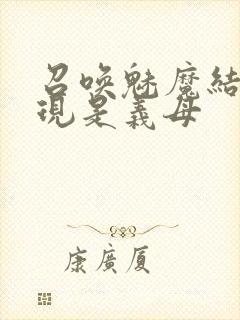 召喚魅魔結
現是義母
康廣厦